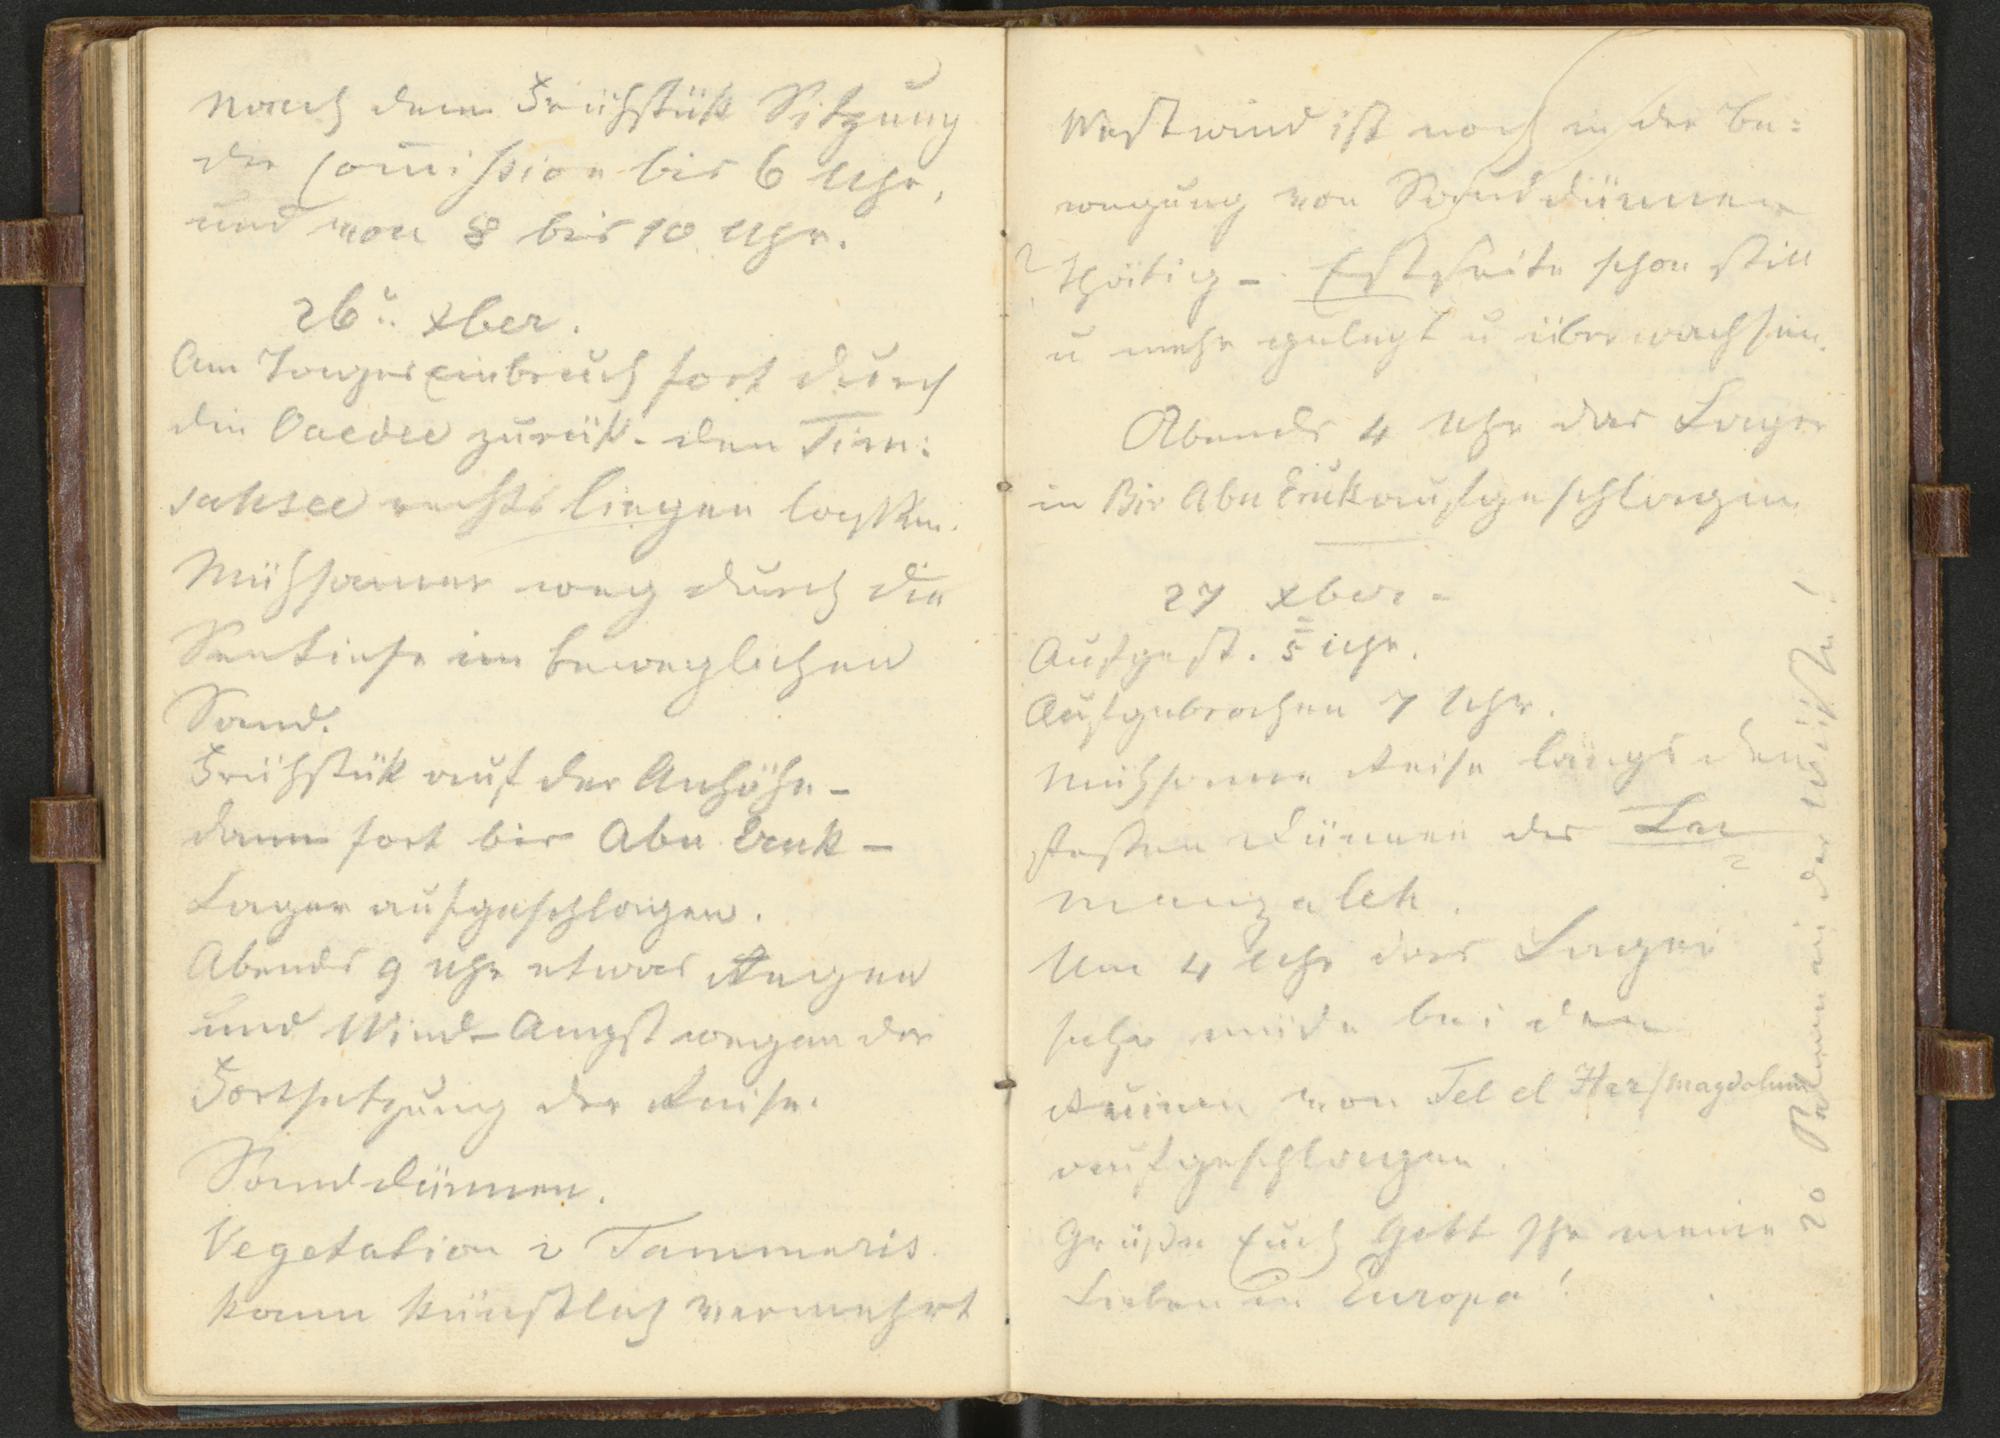 Nach dem Frühstük Sitzung
der Com̅ission bis 6 Uhr,
und von 8 bis 10 Uhr.
26ṇ xber.
Am Tageseinbruch fort durch
die Oaedee zurük - den Tim:
sahsee rechts liegen lassen.
Mühsamer weg durch die
Seetiefe im beweglichen
Sand.
Frühstük auf der Anhöhe -
dann fort bis Abu Eruk -
Lager aufgeschlagen.
Abends 9 Uhr etwas Regen
und Wind - Angst wegen der
Fortsetzung der Reise.
Sanddünnen.
Vegetation Tammeris
kann künstlich vermehrt
Westwind ist noch in der Be=
wegung von Sanddünnen
? thätig - Estseite schon still
u mehr gelegt u überwachsen.
Abends 4 Uhr das Lager
in Bir Abu Eruk aufgeschlagen
27 xber -
Aufgest. 5 Uhr.
Aufgebrochen 7 Uhr.
Mühsame Reise längs den
festen Dünnen des Lac
Menzaleh.
Um 4 Uhr das Lager
sehr müde bei den
Ruinen von Tel el Her / Magdolum
aufgeschlagen.
Grüße Euch Gott Ihr meine
Lieben in Europa!
20 Palmen in der Wüste!